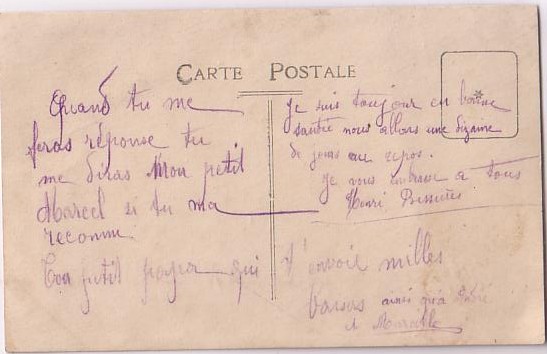 CARTE POSTALE
Quand tu me
feras réponse tu
me diras Mon petit
Marcel si tu ma
reconnu
Ton petit papa qui
Je suis toujour en bonne
santée nous allons une dizaine
de jours au repos.
Je vous embrasse a tous
Henri
t'envoie milles
baisers ainsi qu'à
et